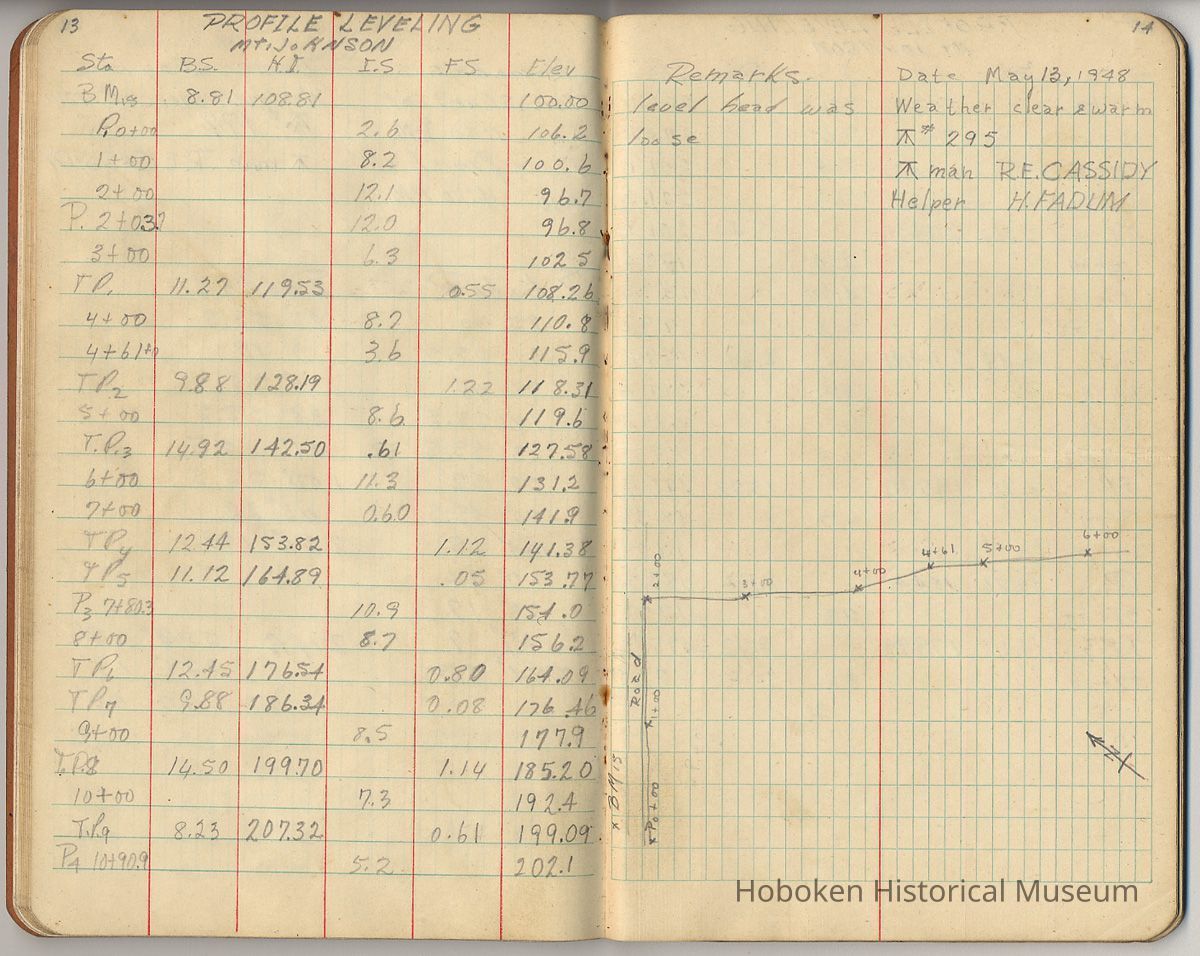 13
PROFILE LEVELING
MT. JOHNSON
Sta B.S. H.I. I.S. F.S. Elev
B.M.15 8.81 108.81 100.00
P. 0+00 2.6 106.2
1+00 8.2 100.6
2+00 12.1 96.7
P. 2+03.7 12.0 96.8
3+00 6.3 102.5
T P1 11.27 119.53 0.55 108.26
4+00 8.7 110.8
4+61 3.6 115.9
T P2 9.88 128.19 1.22 118.31
5+00 8.6 119.6
T.P.3 14.92 142.50 .61 127.58
6+00 11.3 131.2
7+00 0.60 141.9
T P4 12.44 153.82 1.12 141.38
T P5 11.12 164.89 .05 153.77
P3 7+80.3 10.9 154.0
8+00 8.7 156.2
T P6 12.45 176.54 0.80 164.09
T P7 9.88 186.34 0.08 176.46
9+00 8.5 177.9
T.P.8 14.50 199.70 1.14 185.20
10+00 7.3 192.4
T.P.9 8.23 207.32 0.61 199.09
P4 10+90.9 5.2 202.1
14
Remarks.
level head was
loose
Date May 13, 1948
Weather clear & warm
⊼ # 295
⊼ man R.E. CASSIDY
Helper H. FADUM
6+00
5+00
4+61
4+00
3+00
2+00
Road
1+00
BM 15
P. 0+00
N
Hoboken Historical Museum